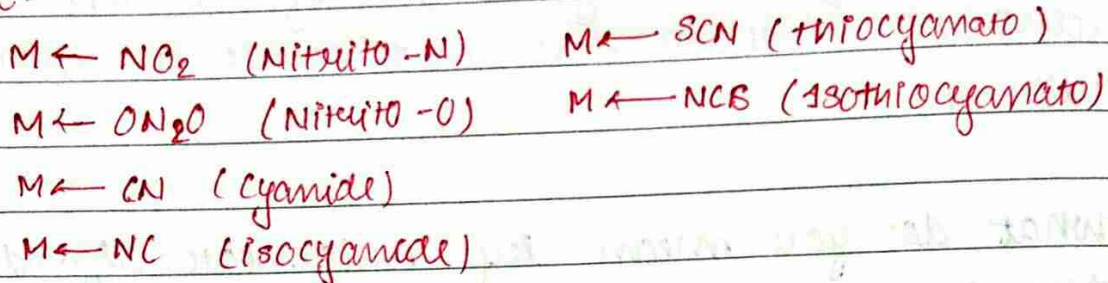 M ← NO₂ (Nitrito-N) M ← SCN (thiocyanato)
M ← ON₂O (Nitrito-O) M ← NCS (Isothiocyanato)
M ← CN (Cyanide)
M ← NC (isocyanide)